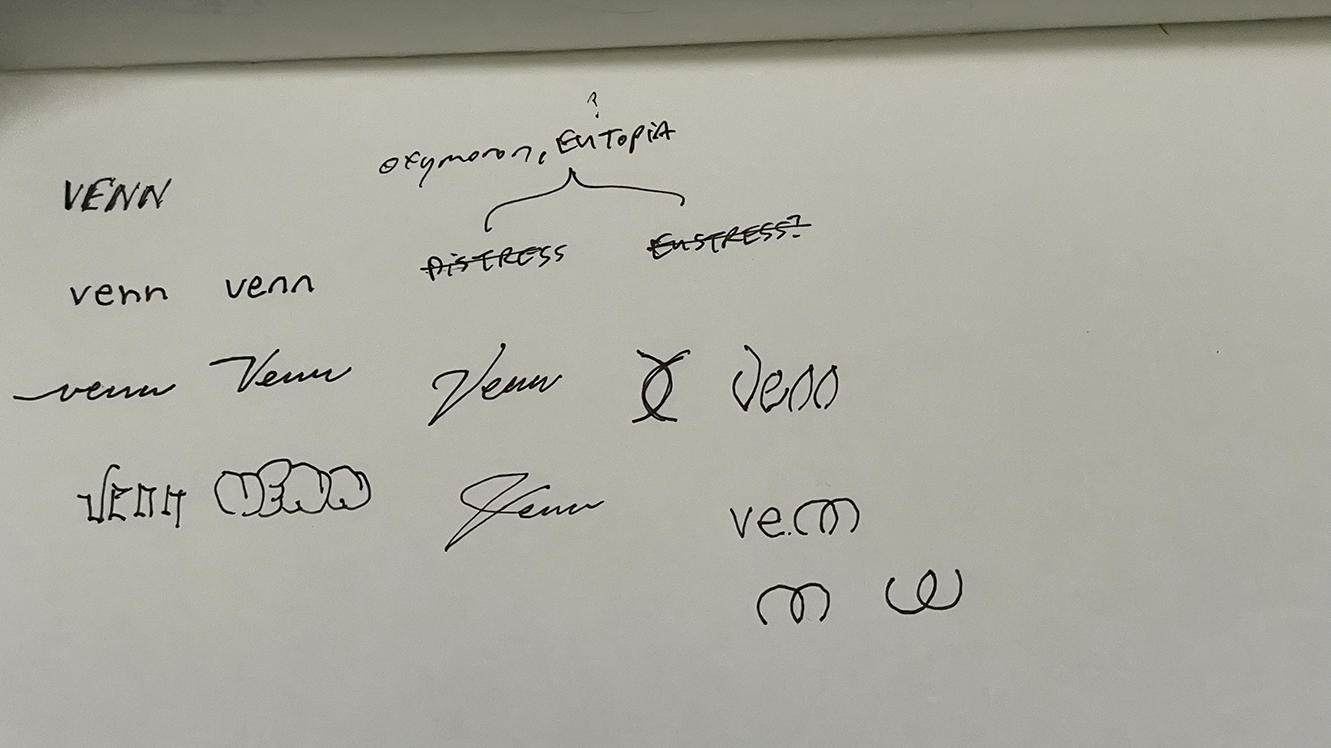 ?
oxymoron, EUTOPIA
VENN
DISTRESS EUSTRESS?
venn venn
venn Venn Venn Venn
VENN VENN Venn
venn